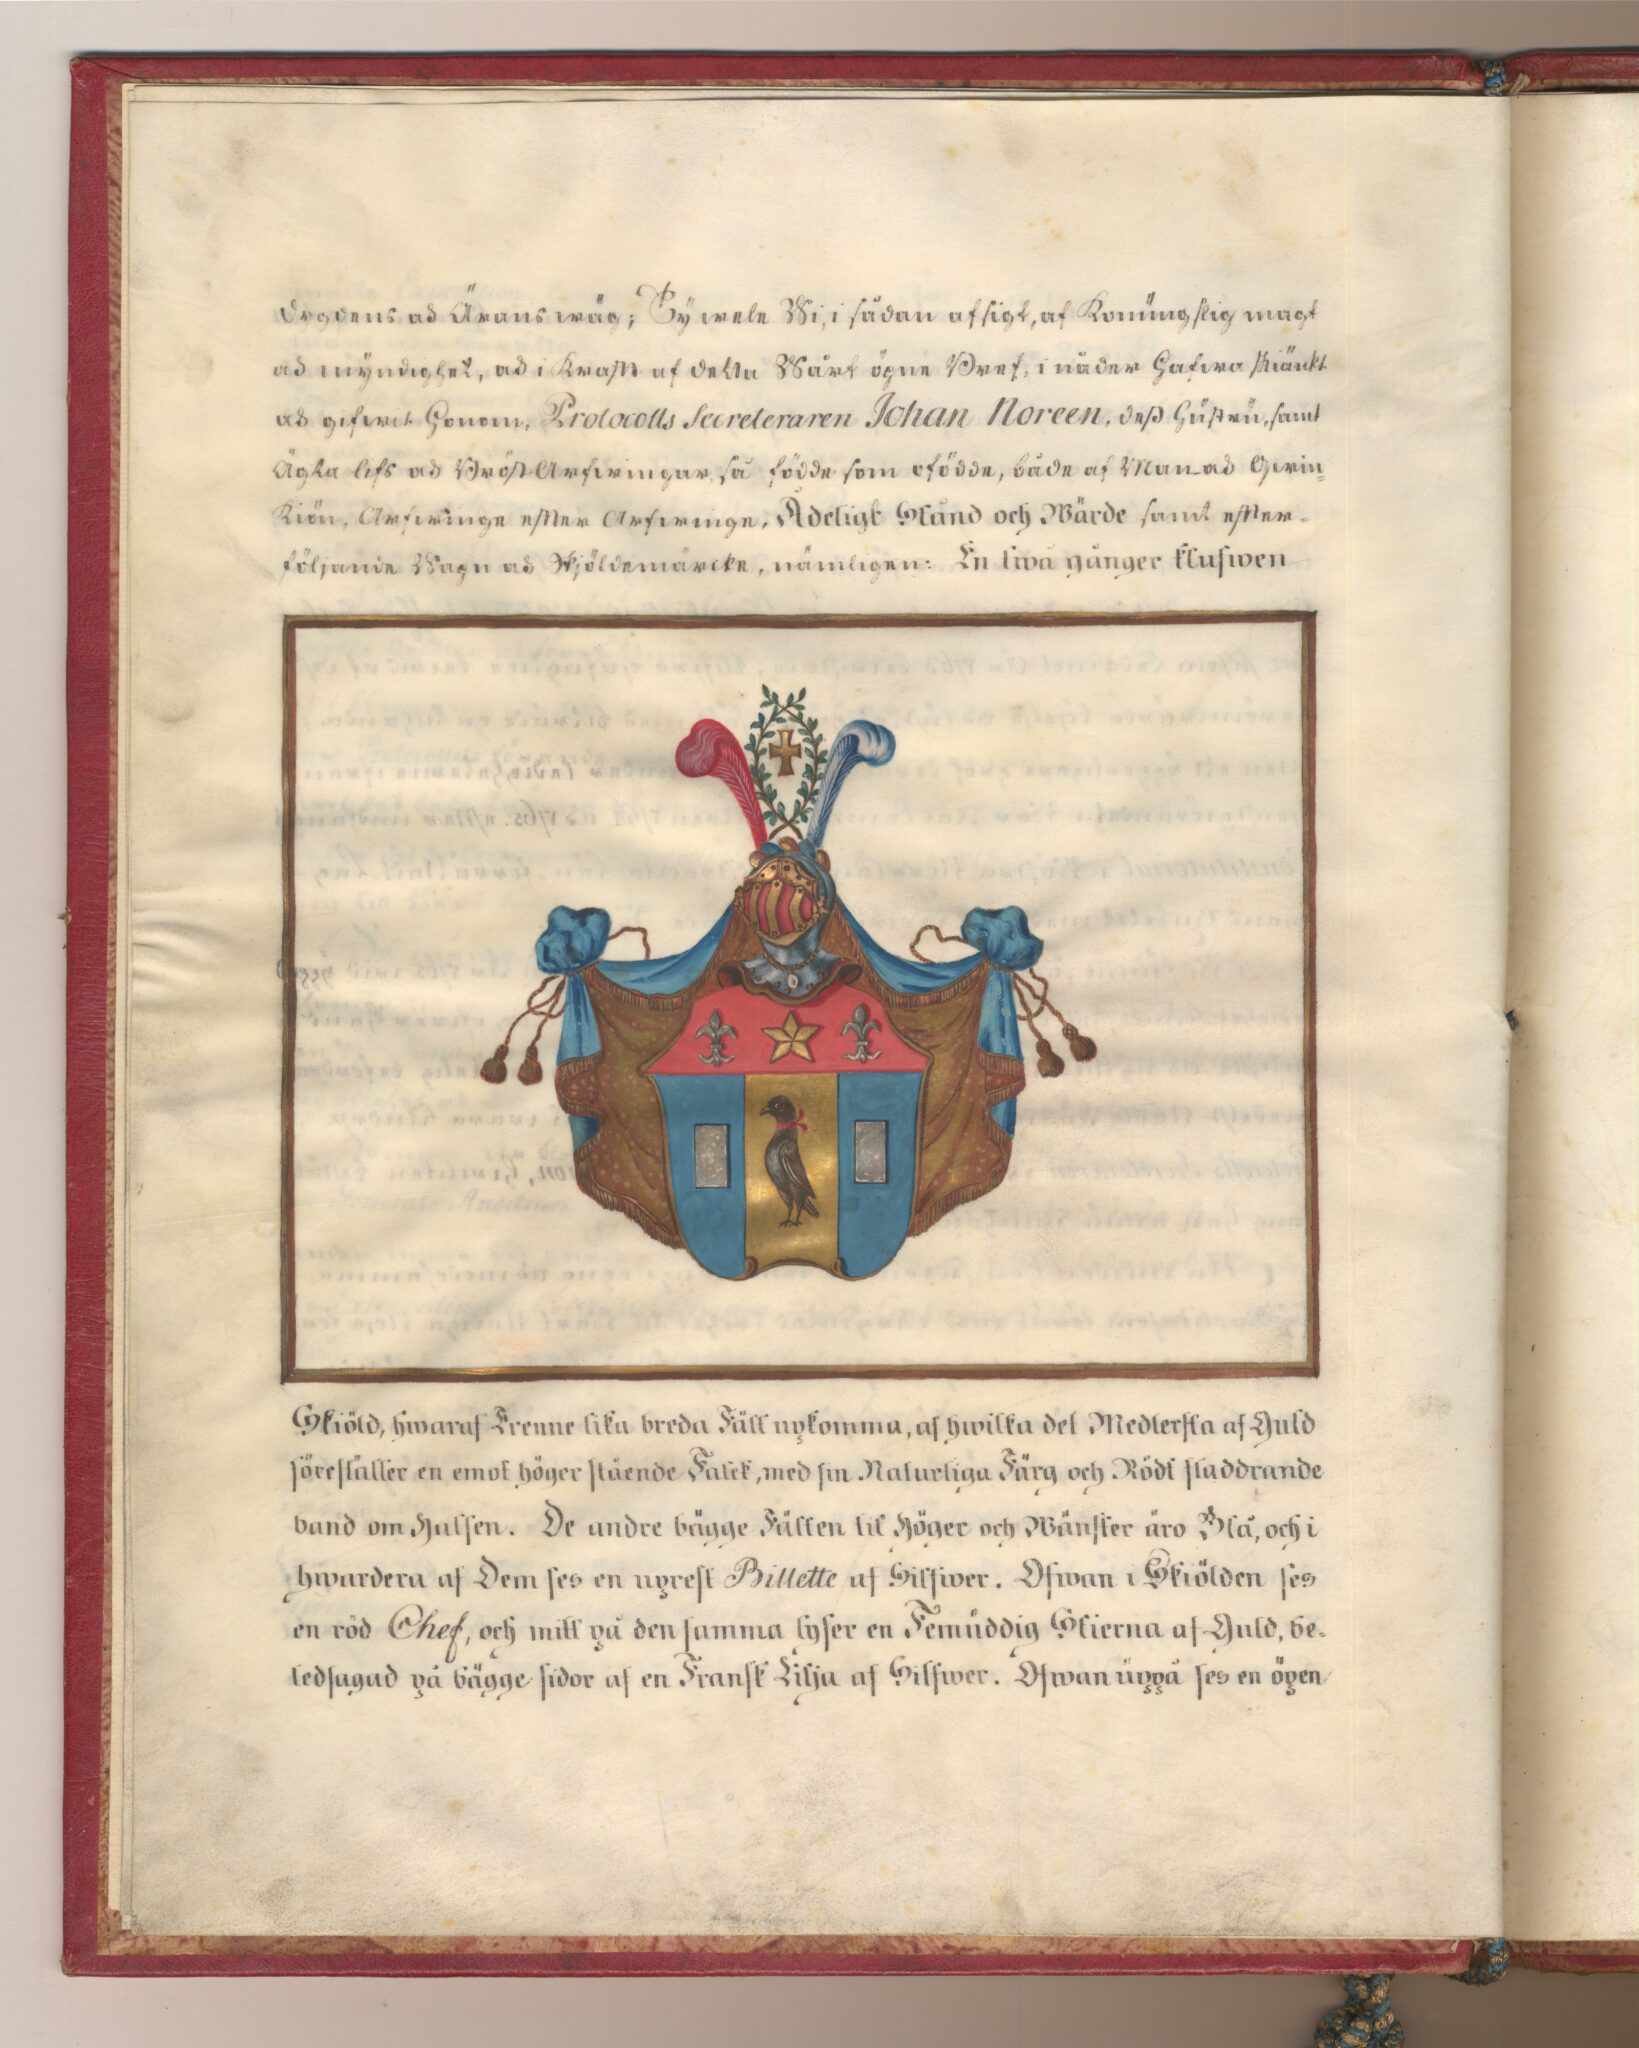 dygdens och Ärans wäg; Ty wele Wi, i sådan afsigt, af Konüngslig magt
och myndighet, och i Kraft af detta Wårt öpne Bref, i nåder hafwa skiänkt
och gifwit honom, Protocolls Secreteraren Johan Noreen, deß Hüstrü, samt
Ägta lifs och Bröst Arfwingar, så födde som ofödde, både af Man och Qwin-
Kiön, Arfwinge efter Arfwinge, Adeligt Stånd och Wärde samt efter-
följande Wapn och Skjöldemärcke, nämligen: En twå gånger klufwen
Skiöld, hwaraf Trenne lika breda Fält upkomma, af hwilka det Medlersta af Guld
föreställer en emot höger stående Falck, med sin Naturliga Färg och Rödt fladdrande
band om Halsen. De andre bägge Fälten til Höger och Wänster äro Blå, och i
hwardera af Dem ses en uprest Billette af Silfwer. Ofwan i Skiölden ses
en röd Chef, och mitt på den samma lyser en Femüddig Stierna af Guld, be-
ledsagad på bägge sidor af en Fransk Lilja af Silfwer. Ofwan üppå ses en öpen